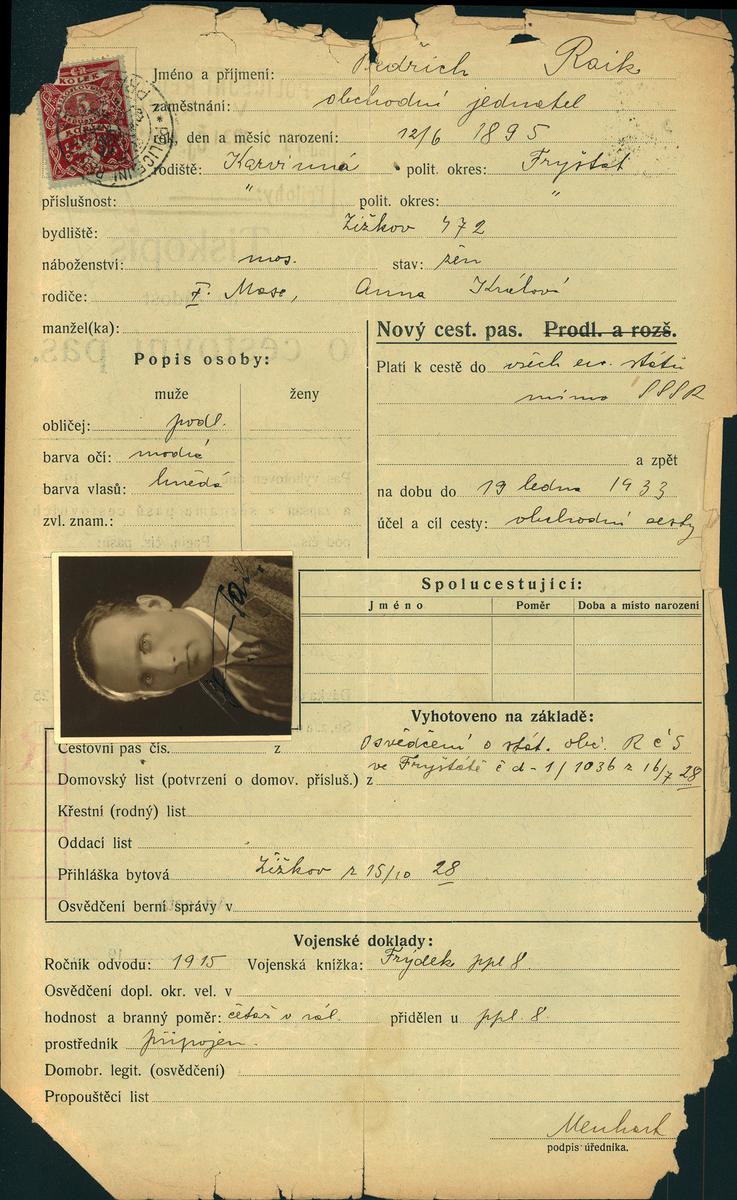 Jméno a příjmení: Bedřich Raik
zaměstnání: obchodní jednatel
rok, den a měsíc narození: 12/6 1895
rodiště: Karvinná polit. okres: Fryštát
příslušnost: " polit. okres: "
bydliště: Žižkov 472
náboženství: mos. stav: žen
rodiče: F. Mose, Anna Králová
manžel(ka):
Popis osoby:
muže ženy
obličej: podl.
barva očí: modré
barva vlasů: hnědá
zvl. znam.:
Nový cest. pas. Prodl. a rozš.
Platí k cestě do všech ev. států
mimo SSSR
a zpět
na dobu do 19 ledna 1933
účel a cíl cesty: obchodní cesty
Spolucestující:
Jméno Poměr Doba a místo narození
Vyhotoveno na základě:
Cestovní pas čís. z Osvědčení o stát. obč. RČS
Domovský list (potvrzení o domov. přísluš.) z ve Fryštátě č d-1/1036 z 16/7 28
Křestní (rodný) list
Oddací list
Přihláška bytová Žižkov z 15/10 28
Osvědčení berní správy v
Vojenské doklady:
Ročník odvodu: 1915 Vojenská knížka: Frýdek ppl 8.
Osvědčení dopl. okr. vel. v
hodnost a branný poměr: četař v zál. přidělen u ppl. 8.
prostředník připojen.
Domobr. legit. (osvědčení)
Propouštěcí list
Menhart
podpis úředníka.
KOLEK
5